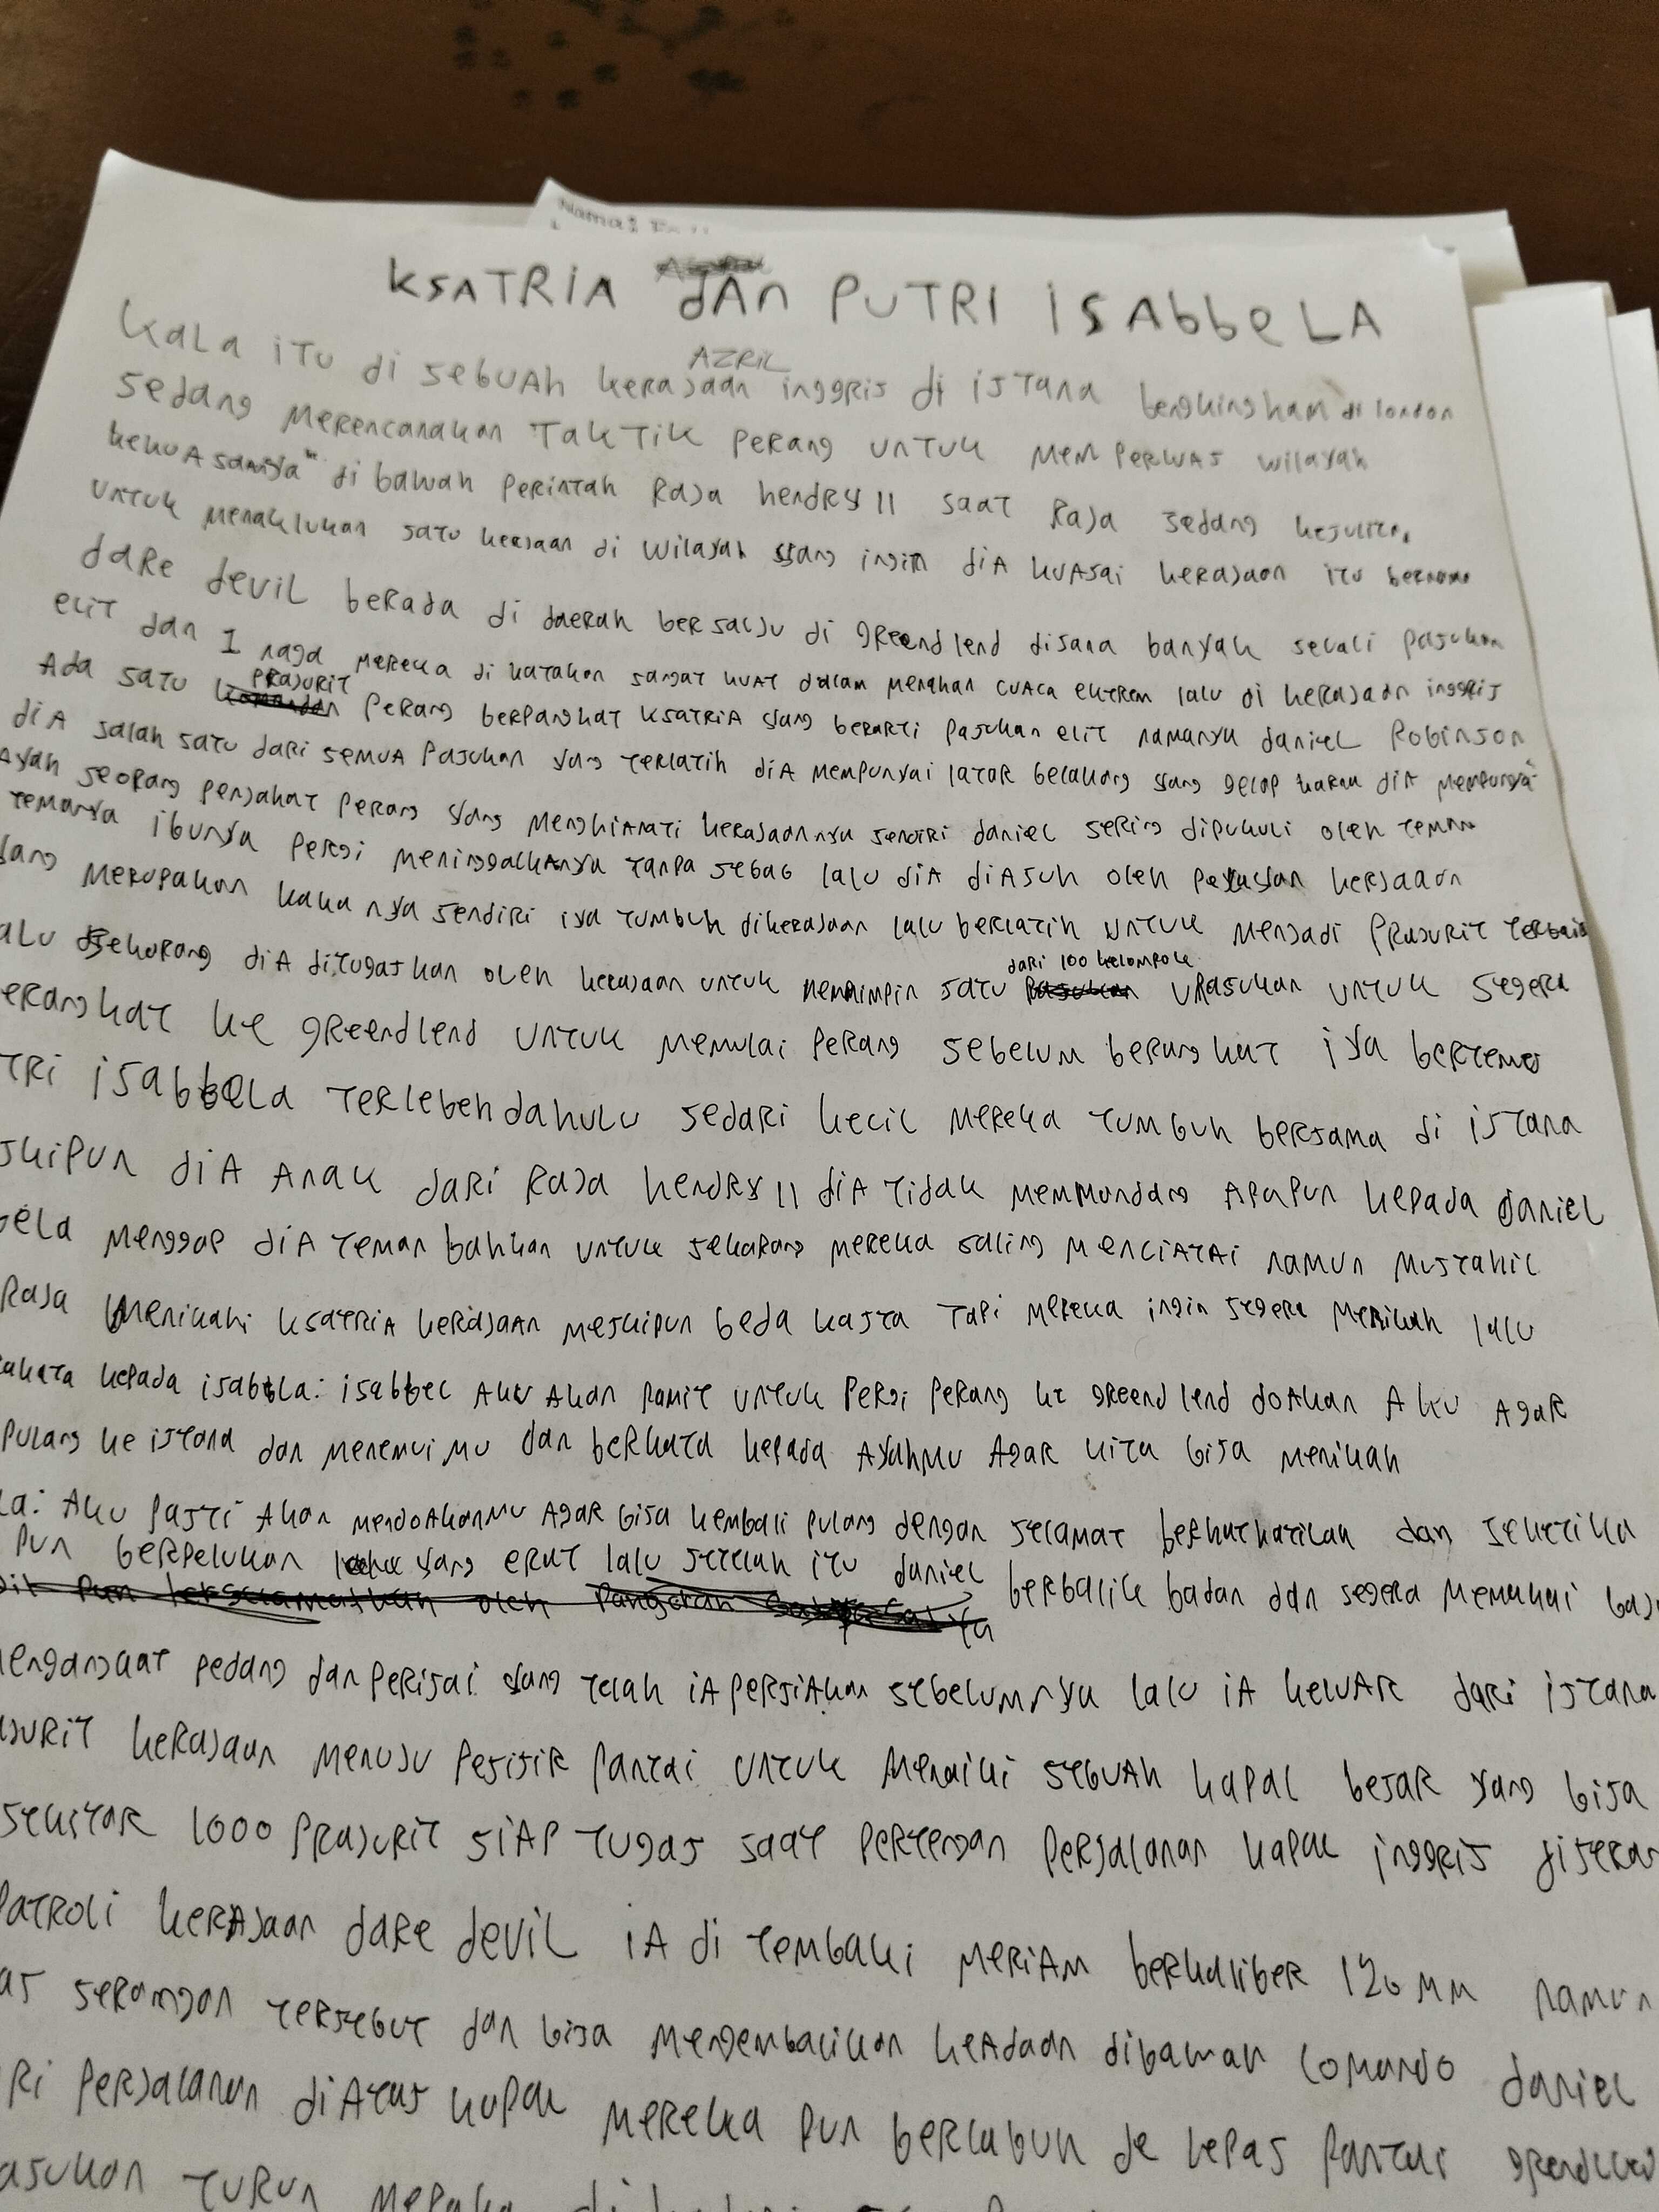 KSATRIA dAn PUTRI ISAbbeLA
AZRIL
kala itu di sebuah kerajaan inggris di istana bengkingham di london
sedang merencanakan taktik perang untuk memperluas wilayah
kekuasannya" di bawah perintah Raja hendry II saat Raja sedang
untuk menaklukan satu kerjaan di wilayah yang ingin dia kuasai kerajaan itu
dare devil berada di daerah bersalju di greendlend disana banyak sekali pasukan
elit dan 1 naga mereka di katakan sangat kuat dalam menahan cuaca ektrem lalu di kerajaan inggris
Ada satu prajurit perang berpangkat ksatria yang berarti pasukan elit namanya daniel Robinson
dia salah satu dari semua pasukan yang terlatih dia mempunyai latar belakang yang gelap dia
Ayah seorang penjahat perang yang menghianati kerajaannya sendiri daniel sering dipukuli oleh teman
temanya ibunya pergi meninggalkanya tanpa sebab lalu dia diasuh oleh kerjaaan
yang merupakan kaka nya sendiri iya tumbuh dikerajaan lalu berlatih untuk menjadi prajurit terbaik
alu sekarang dia ditugaskan oleh kerajaan untuk memimpin satu dari 100 kelompok pasukan untuk segera
erangkat ke greendlend untuk memulai perang sebelum berangkat iya bertemu
tri isabbela terlebeh dahulu sedari kecil mereka tumbuh bersama di istana
skipun dia anak dari Raja hendry II dia tidak memmandang apapun kepada daniel
bela menggap dia teman bahkan untuk sekarang mereka saling menciatai namun mustahil
Raja menikahi ksatria kerajaan meskipun beda kasta tapi mereka ingin segera menikah lalu
kata kepada isabbela: isabbel aku akan pamit untuk pergi perang ke greendlend doakan aku agar
pulang ke istana dan menemui mu dan berkata kepada ayahmu agar kita bisa menikah
la: Aku pasti akan mendoakanmu agar bisa kembali pulang dengan selamat berhathatilah dan seketika
pun berpelukan yang erat lalu setelah itu daniel berbalik badan dan segera memakai baju
mengangaat pedang dan perisai yang telah ia persiakan sebelumnya lalu ia keluar dari istana
ajurit kerajaan menuju pesisir pantai untuk menaiki sebuah kapal besar yang bisa
sekitar 1000 prajurit siap tugas saat pertengan perjalanan kapal inggris diseran
patroli kerajaan dare devil ia di tembaki meriam berkaliber 120 MM namun
as serangan tersebut dan bisa mengembalikan keadaan dibawah comando daniel
ri perjalanan diatas kapal mereka pun berlabuh de lepas pantai
asukan turun